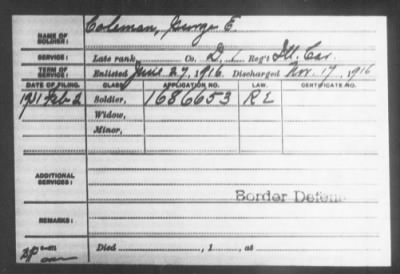 NAME OF SOLDIER: Coleman, George E.
SERVICE: Late rank, Co. D, 1, Reg't Ill. Cav.
TERM OF SERVICE: Enlisted June 27, 1916, Discharged Nov. 17, 1916
DATE OF FILING. CLASS. APPLICATION NO. LAW. CERTIFICATE NO.
1931 Feb 2 Soldier, 1686653 RE
Widow,
Minor,
ADDITIONAL SERVICES:
Border Defen
REMARKS:
Died , 1 , at